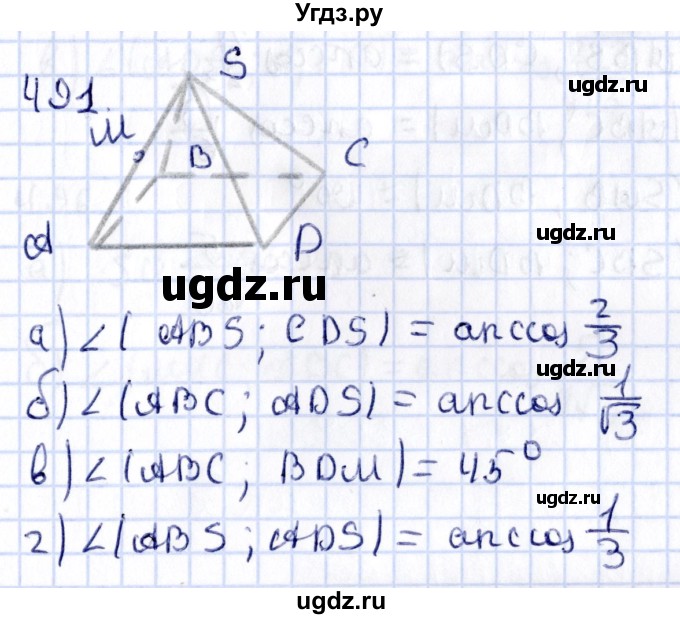 Угдз.ру
491.
S
ugdz.ru
M
B
C
A
D
ugdz.ru
ugdz.ru
а) ∠(ABS; CDS) = arccos 2/3
ugdz.ru
б) ∠(ABC; ADS) = arccos 1/√3
в) ∠(ABC; BDM) = 45°
ugdz.ru
г) ∠(ABS; ADS) = arccos 1/3
ugdz.ru